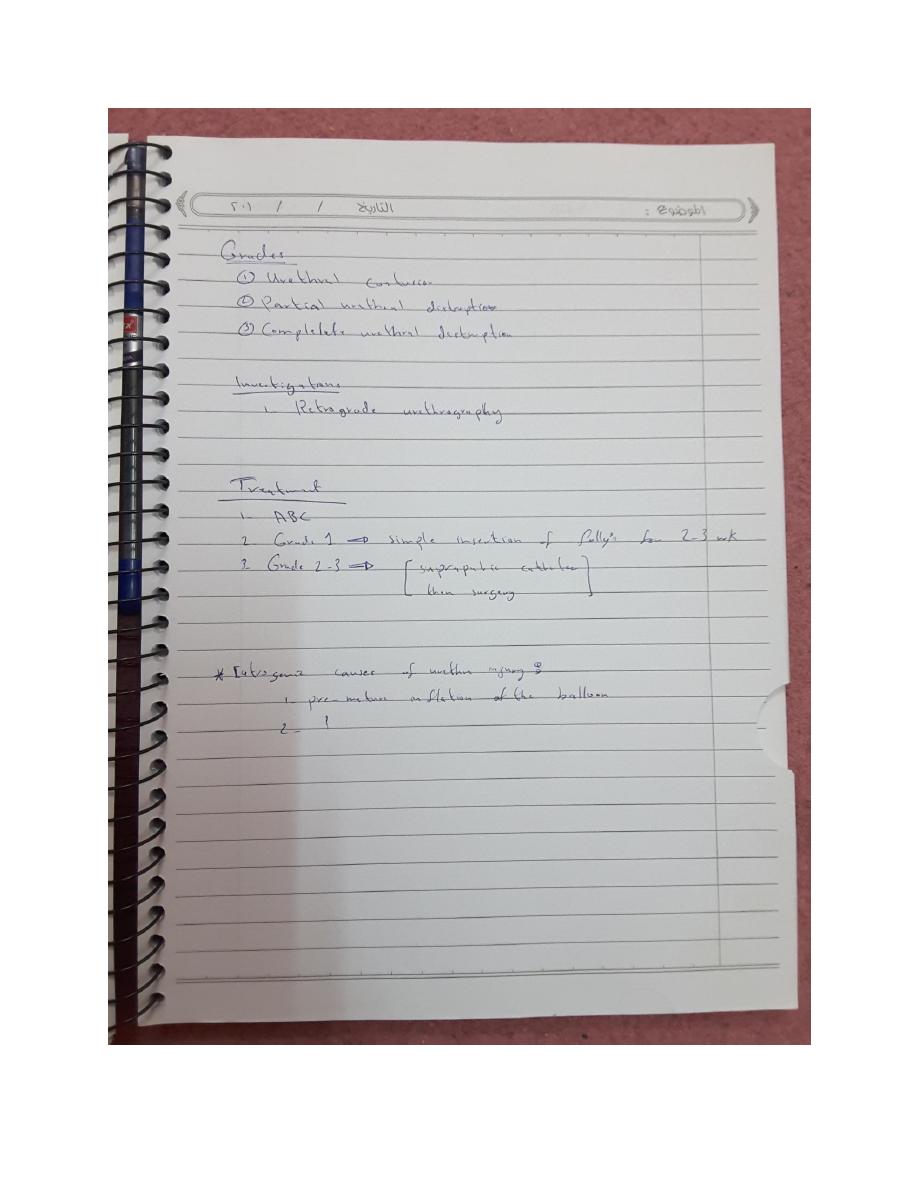 الموضوع : التاريخ / / ٢٠١
Grades
① Urethral contusion
② Partial urethral disruption
③ Complelate urethral disruption
Investigations
1- Retrograde urethrography
Treatment
1- ABC
2- Grade 1 ⇒ simple insertion of folly's for 2-3 wk
3- Grade 2-3 ⇒ [suprapubic catheter
then surgery]
* Iatrogenic causes of urethra injury :
1- pre-mature inflation of the balloon
2-